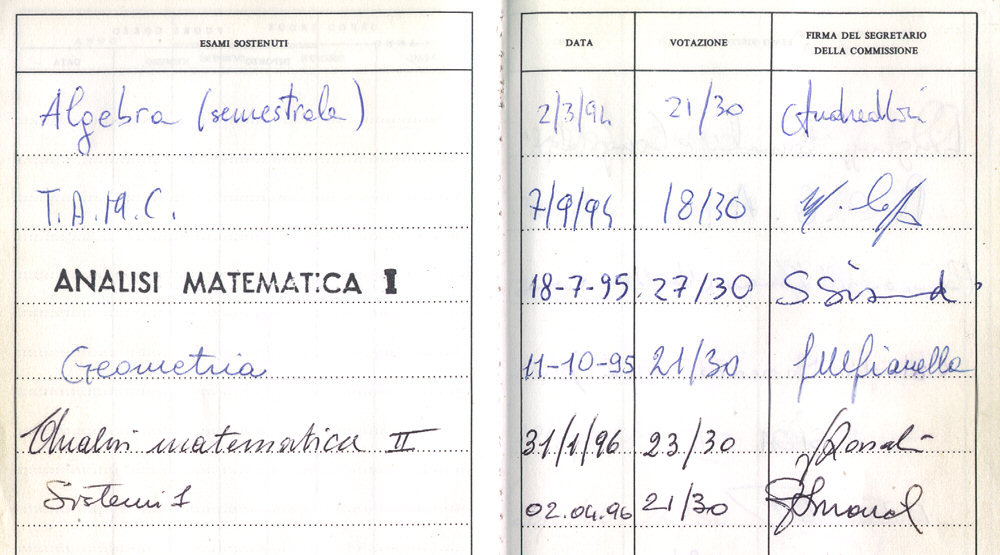 ESAMI SOSTENUTI DATA VOTAZIONE FIRMA DEL SEGRETARIO
DELLA COMMISSIONE
Algebra (semestrale) 2/3/94 21/30
T.A.M.C. 7/9/94 18/30
ANALISI MATEMATICA I 18-7-95 27/30
Geometria 11-10-95 21/30
Analisi matematica II 31/1/96 23/30
Sistemi 1 02.04.96 21/30